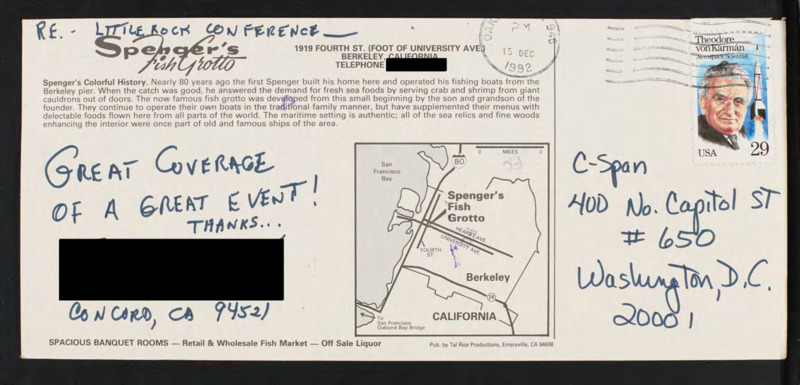 RE. - LITTLE ROCK CONFERENCE
Spenger's
Fish Grotto
1919 FOURTH ST. (FOOT OF UNIVERSITY AVE)
BERKELEY, CALIFORNIA
TELEPHONE
PM
15 DEC
1992
Theodore
von Kármán
Aerospace Scientist
USA 29
Spenger's Colorful History. Nearly 80 years ago the first Spenger built his home here and operated his fishing boats from the
Berkeley pier. When the catch was good, he answered the demand for fresh sea foods by serving crab and shrimp from giant
cauldrons out of doors. The now famous fish grotto was developed from this small beginning by the son and grandson of the
founder. They continue to operate their own boats in the traditional family manner, but have supplemented their menus with
delectable foods flown here from all parts of the world. The maritime setting is authentic; all of the sea relics and fine woods
enhancing the interior were once part of old and famous ships of the area.
GREAT COVERAGE
OF A GREAT EVENT!
THANKS...
CONCORD, CA 94521
0 MILES 2
80
San
Francisco
Bay
Spenger's
Fish
Grotto
HEARST AVE.
UNIVERSITY AVE.
FOURTH
ST
Berkeley
24
To
San Francisco
Oakland Bay Bridge
CALIFORNIA
C-Span
400 No. Capitol ST
# 650
Washington, D.C.
20001
SPACIOUS BANQUET ROOMS — Retail & Wholesale Fish Market — Off Sale Liquor
Pub. by Tal Rice Productions, Emeryville, CA 94608